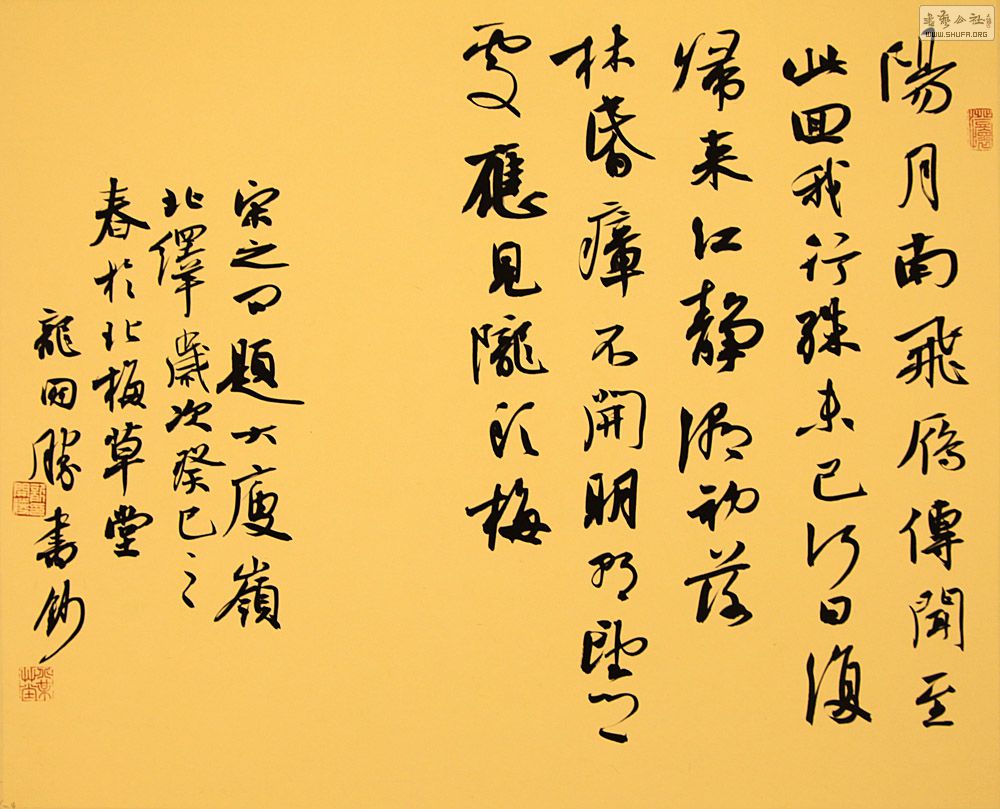 陽月南飛雁傳聞至
此回我行殊未已何日復
歸来江静潮初落
林昏瘴不開明朝望鄉
處應見隴頭梅
宋之问題大庾嶺
北驛歲次癸巳之
春於北梅草堂
龍國勝書鈔
WWW.SHUFA.ORG